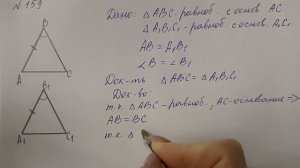 N 159
Дано: △ABC - равноб. с основ AC
△A₁B₁C₁ - равноб. с основ. A₁C₁
AB = A₁B₁
∠B = ∠B₁
Док-ть: △ABC = △A₁B₁C₁
Док-во:
т.к. △ABC - равноб., AC - основание ⇒
AB = BC
т.к. △
B
A
C
B₁
A₁
C₁